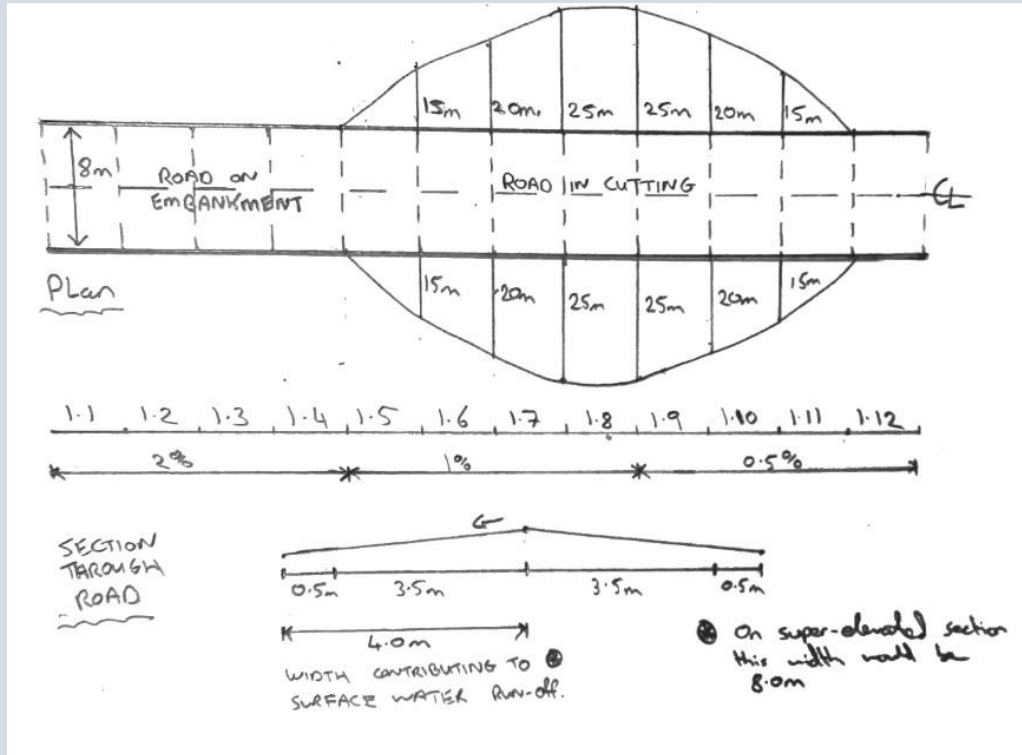 15m 20m. 25m 25m 20m 15m
8m
ROAD ON
EMBANKMENT
ROAD IN CUTTING
CL
15m 20m 25m 25m 20m 15m
PLan
1.1 1.2 1.3 1.4 1.5 1.6 1.7 1.8 1.9 1.10 1.11 1.12
2% 1% 0.5%
SECTION
THROUGH
ROAD
0.5m 3.5m 3.5m 0.5m
4.0m
WIDTH CONTRIBUTING TO
SURFACE WATER RUN-off.
On super-elevated section
this width would be
8.0m